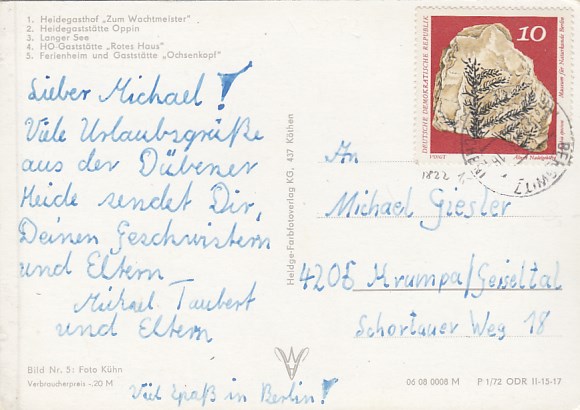 1. Heidegasthof „Zum Wachtmeister"
2. Heidegaststätte Oppin
3. Langer See
4. HO-Gaststätte „Rotes Haus"
5. Ferienheim und Gaststätte „Ochsenkopf"
Lieber Michael!
Viele Urlaubsgrüße
aus der Dübener
Heide sendet Dir,
Deinen Geschwistern
und Eltern
Michael Taubert
und Eltern
Bild Nr. 5: Foto Kühn
Verbraucherpreis -,20 M
Viel Spaß in Berlin!
Heldge-Farbfotoverlag KG, 437 Köthen
10
DEUTSCHE DEMOKRATISCHE REPUBLIK
Museum für Naturkunde Berlin
VOIGT
1822
An
Michael Giesler
4205 Krumpa/Geiseltal
Schortauer Weg 18
06 08 0008 M
P 1/72 ODR II-15-17